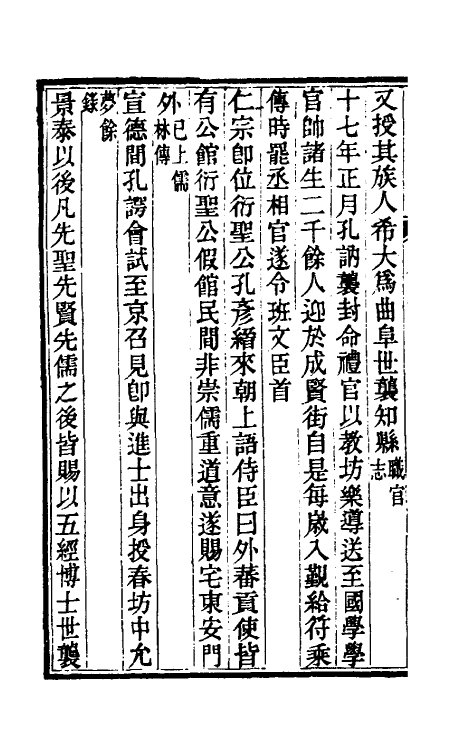 又授其族人希大爲曲阜世襲知縣職官志
十七年正月孔訥襲封命禮官以教坊樂導送至國學學
官師諸生二千餘人迎於成賢街自是每歲入覲給符乘
傳時罷丞相官遂令班文臣首
仁宗卽位衍聖公孔彥縉來朝上語侍臣曰外蕃貢使皆
有公館衍聖公假館民間非崇儒重道意遂賜宅東安門
外已上儒林傳
宣德間孔諤會試至京召見卽與進士出身授春坊中允
夢餘錄
景泰以後凡先聖先賢先儒之後皆賜以五經博士世襲